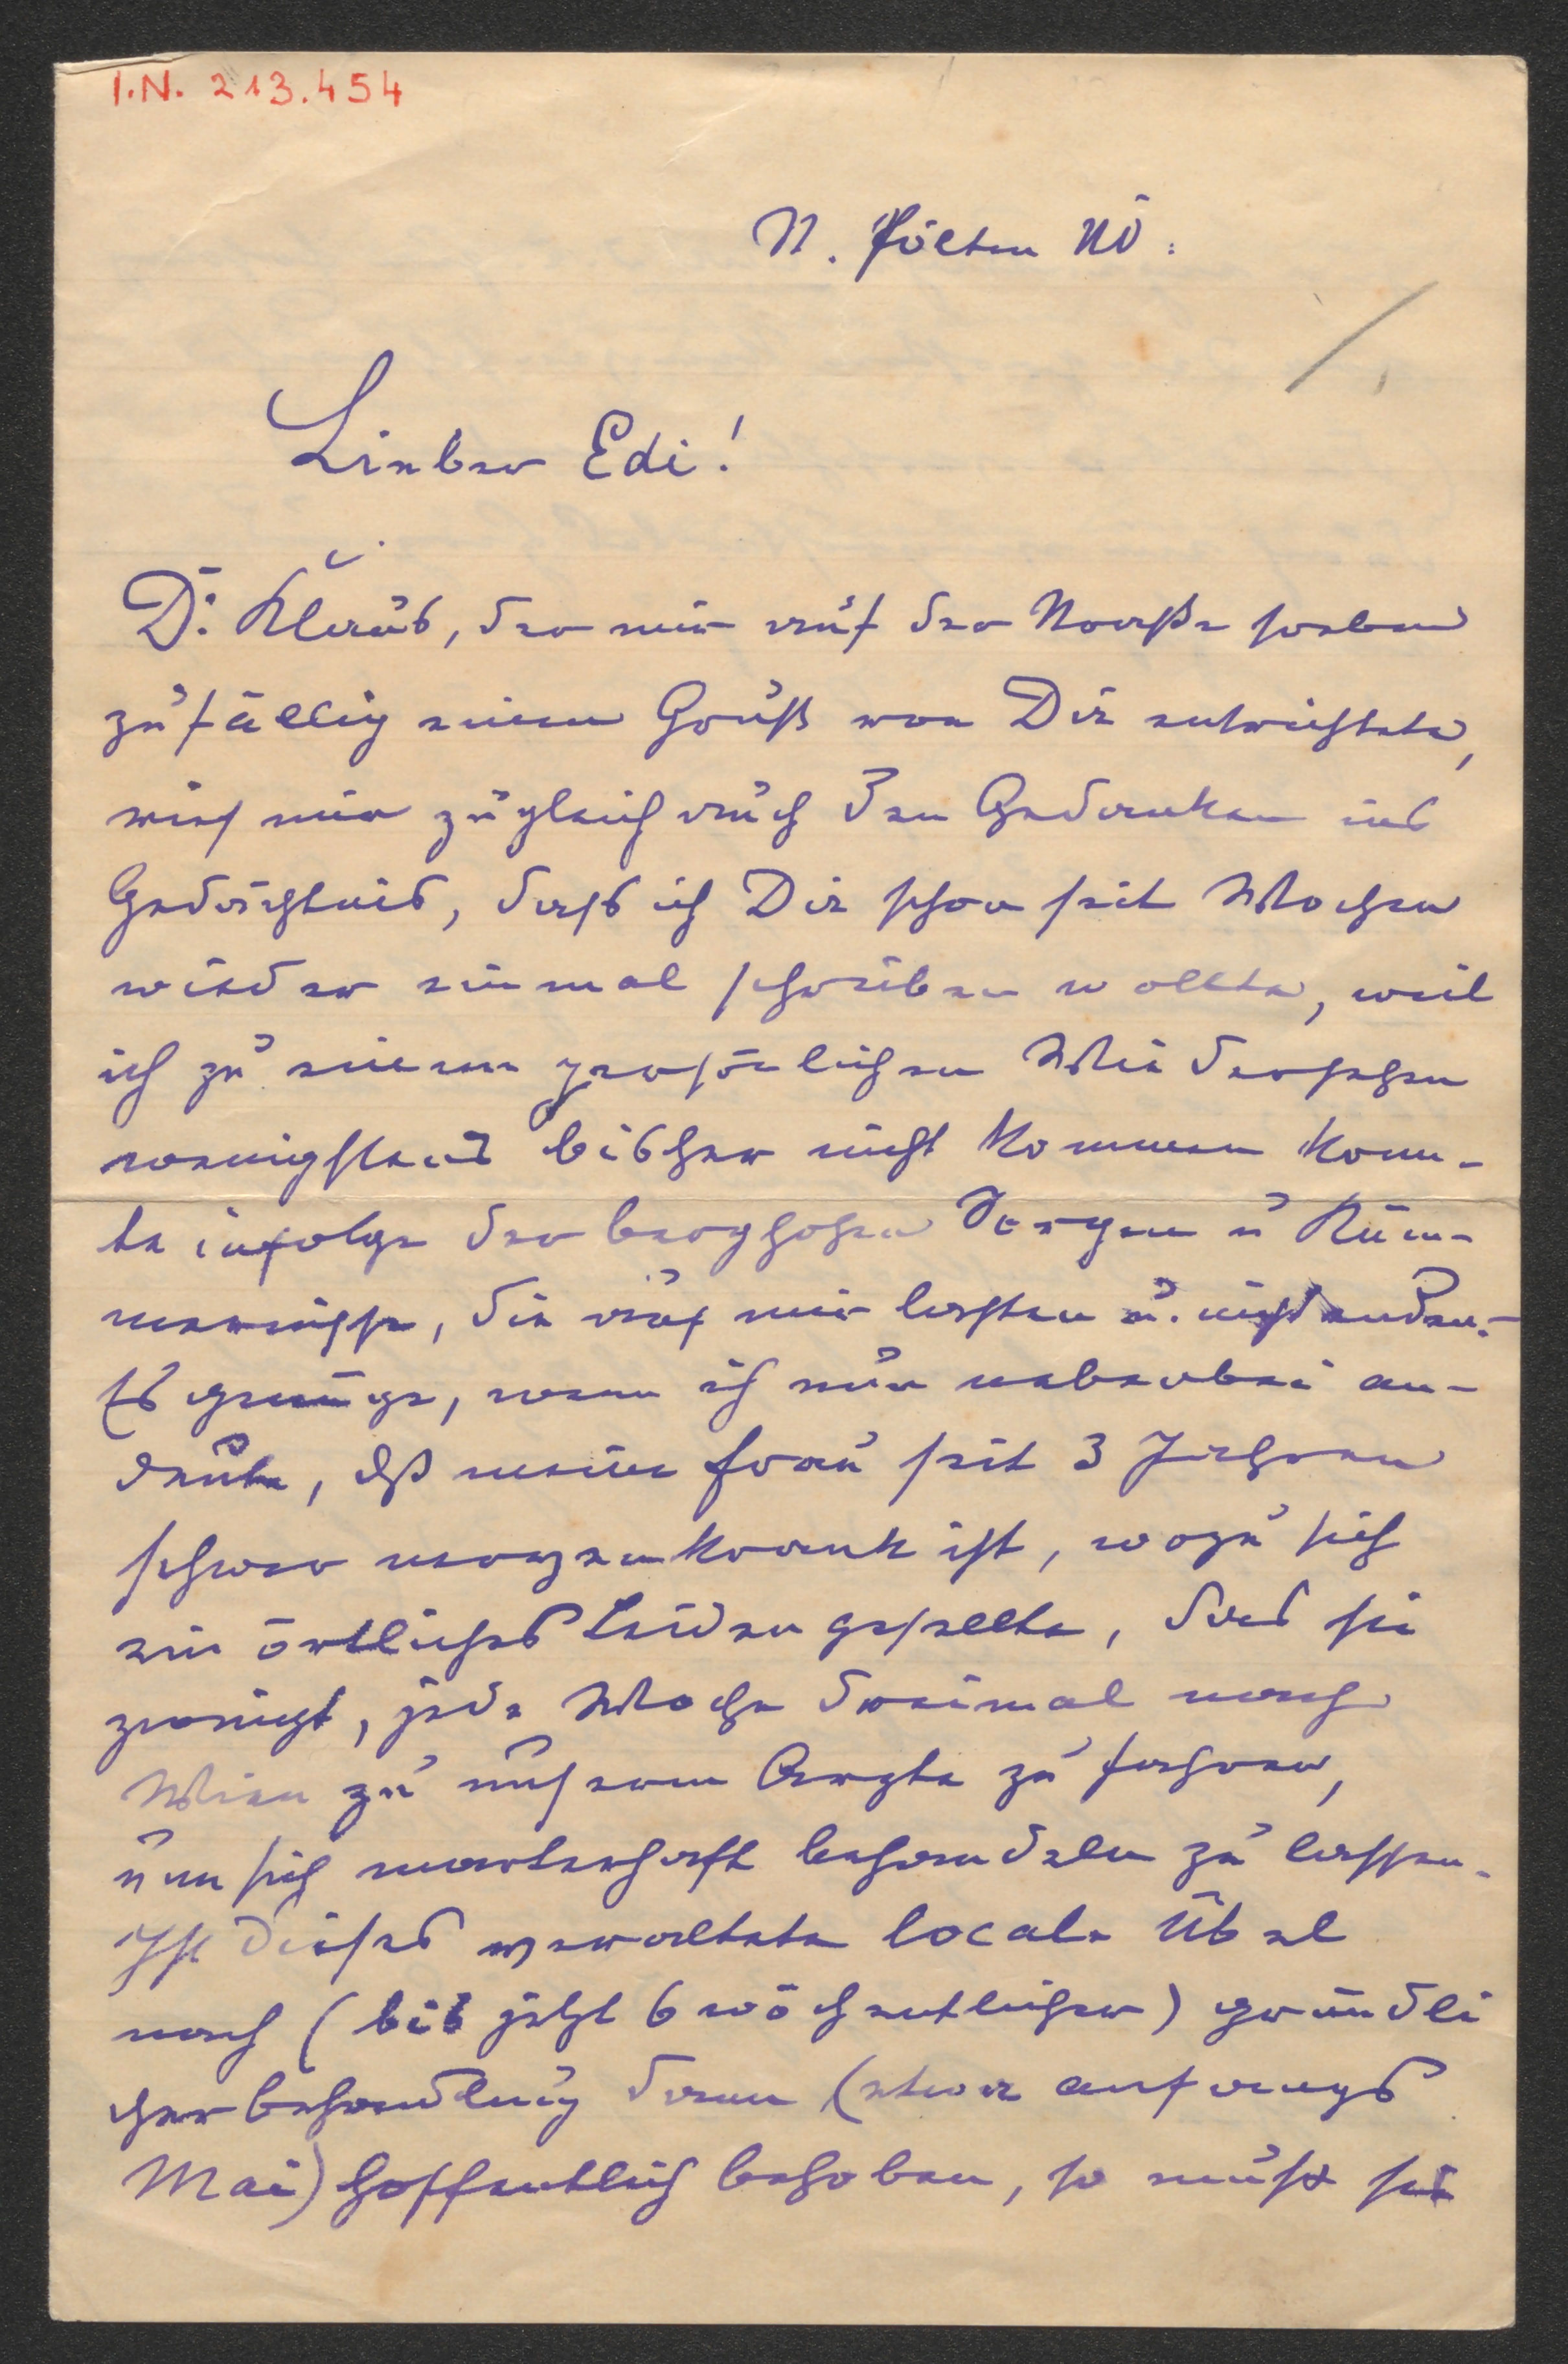 I.N. 213.454
St. Pölten NÖ:
Lieber Edi!
Dr. Klaus, der mir auf der Straße soeben
zufällig einen Gruß von Dir entrichtete,
rief mir zugleich auch den Gedanken ins
Gedächtnis, dass ich Dir schon seit Wochen
wieder einmal schreiben wollte, weil
ich zu einem persönlichen Wiedersehen
wenigstens bisher nicht kommen konn-
te infolge der berghohen Sorgen u Küm-
mernisse, die auf mir lasten u. nicht enden.-
Es genüge, wenn ich nur nebenbei an-
deute, dß meine Frau seit 3 Jahren
schwer nervenkrank ist, wozu sich
ein örtliches Leiden gesellte, das sie
zwingt, jede Woche dreimal nach
Wien zu unserem Arzte zu fahren,
um sich marterhaft behandeln zu lassen.
Ist dieses veraltete locale Übel
nach (bis jetzt 6 wöchentlicher) gründli
cher Behandlung dann (etwa anfangs
Mai) hoffentlich behoben, so muß sie